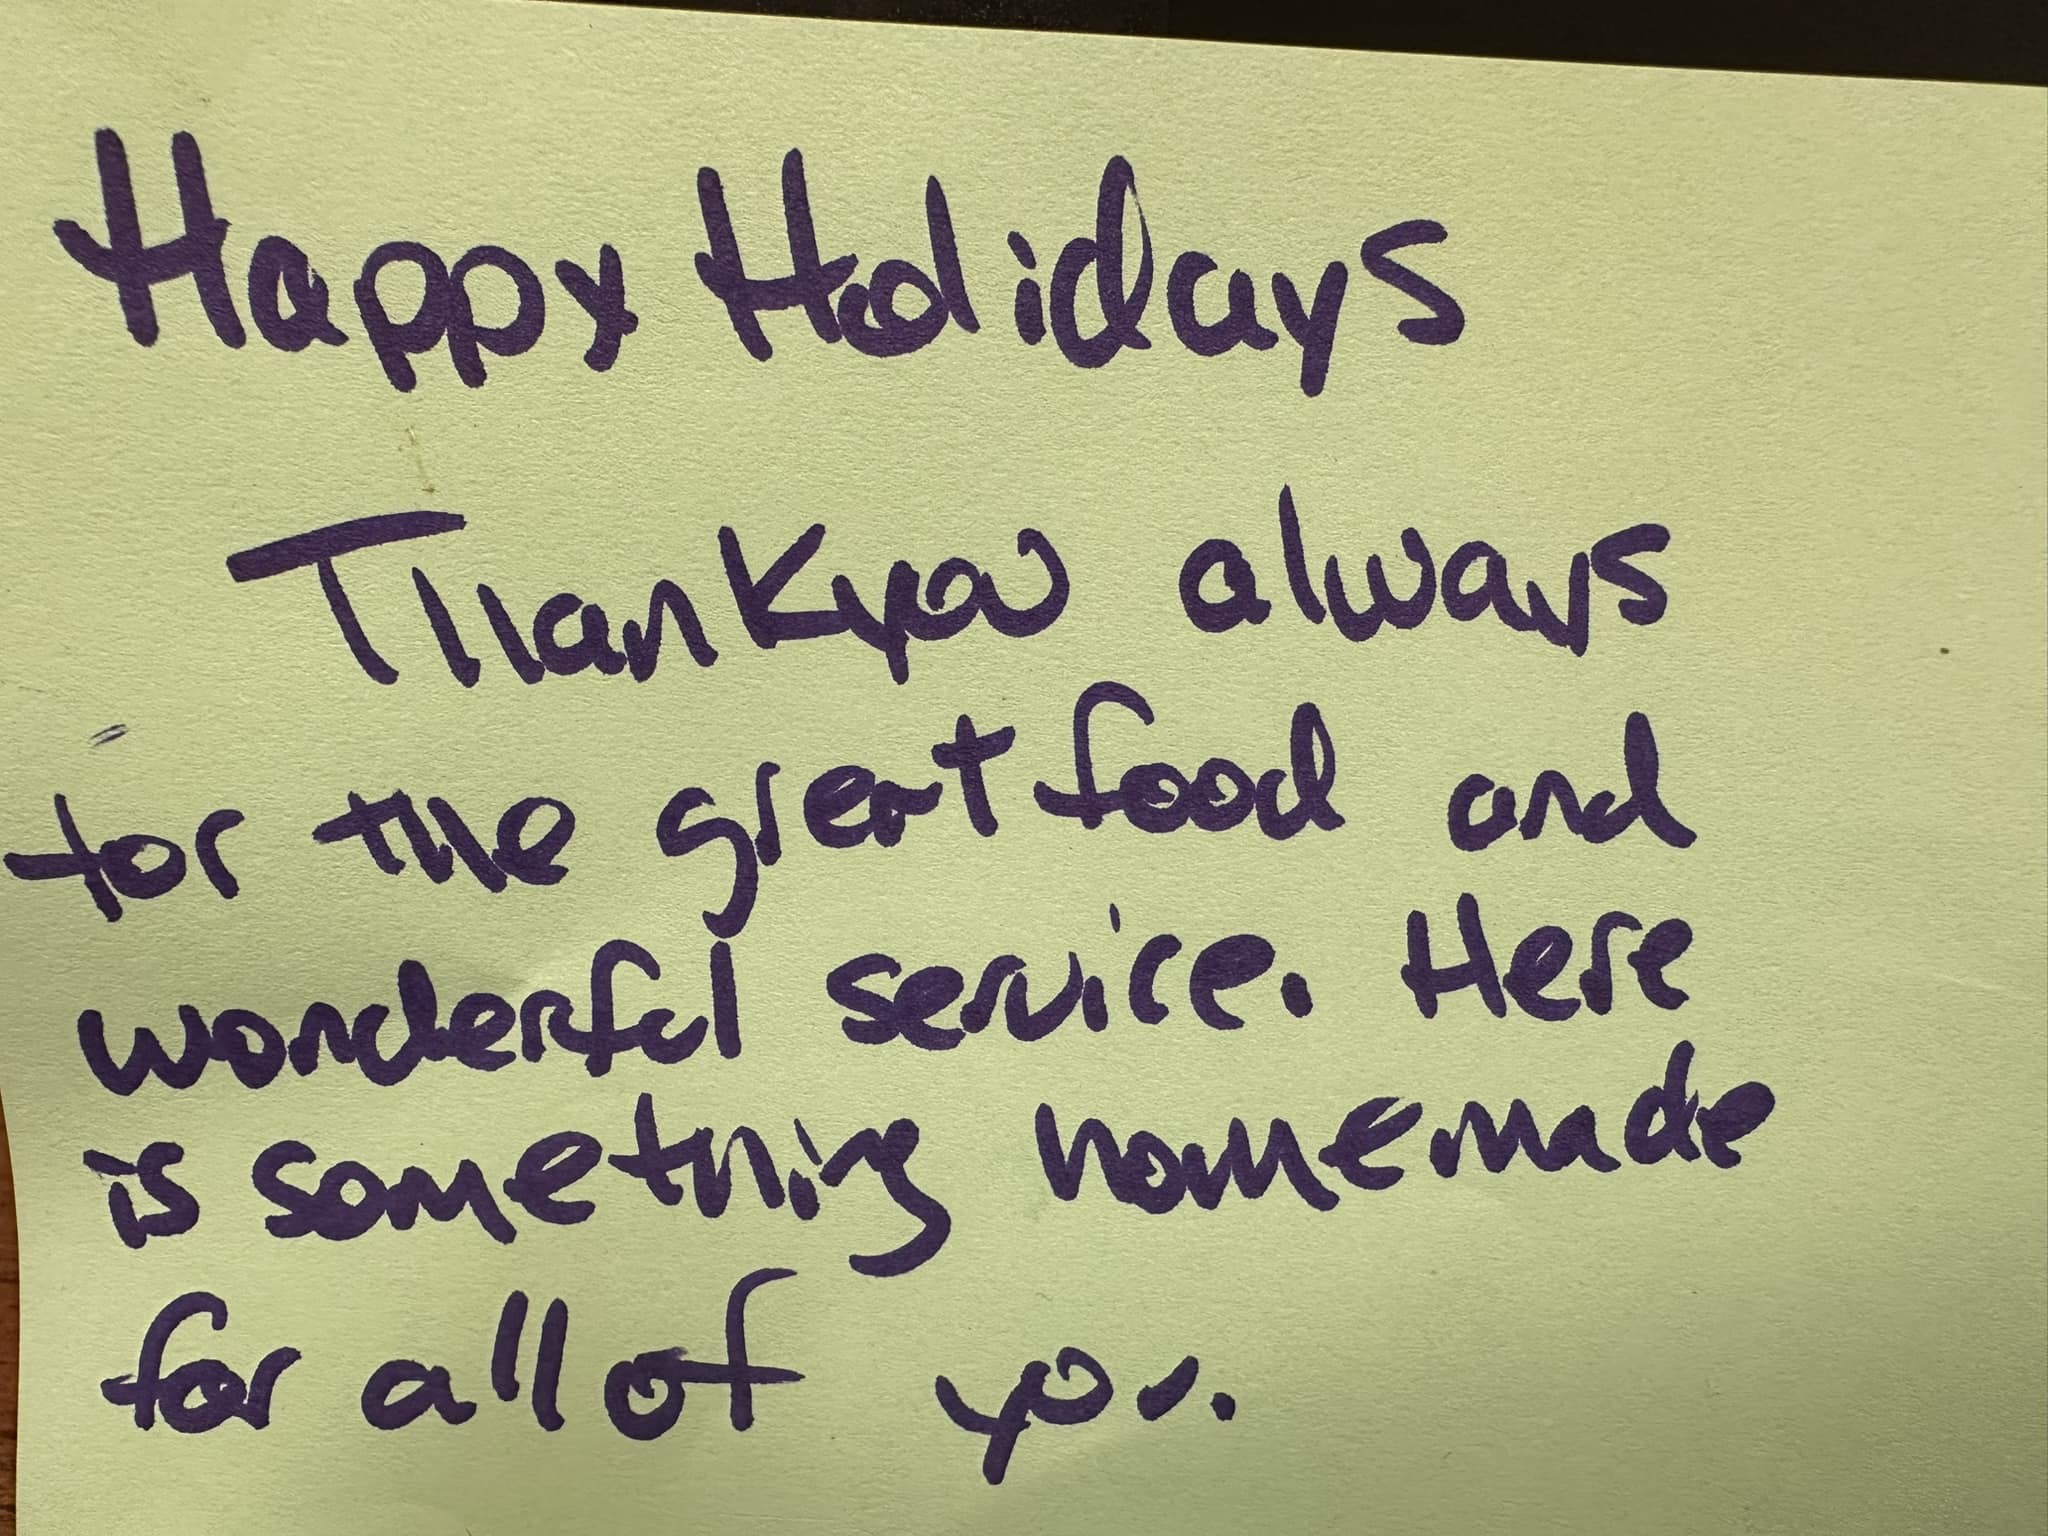 Happy Holidays
Thankyou always
for the great food and
wonderful service. Here
is something homemade
for all of you.